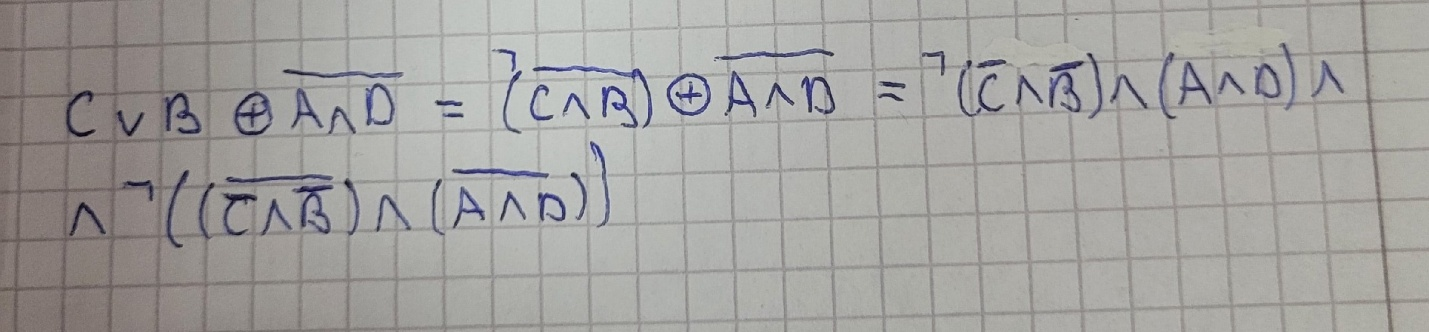 C ∨ B ⊕ \overline{A ∧ D} = ¬(\overline{C ∧ B}) ⊕ \overline{A ∧ D} = ¬(\overline{C} ∧ \overline{B}) ∧ (A ∧ D) ∧
∧ ¬((\overline{\overline{C} ∧ \overline{B}}) ∧ (\overline{A ∧ D}))